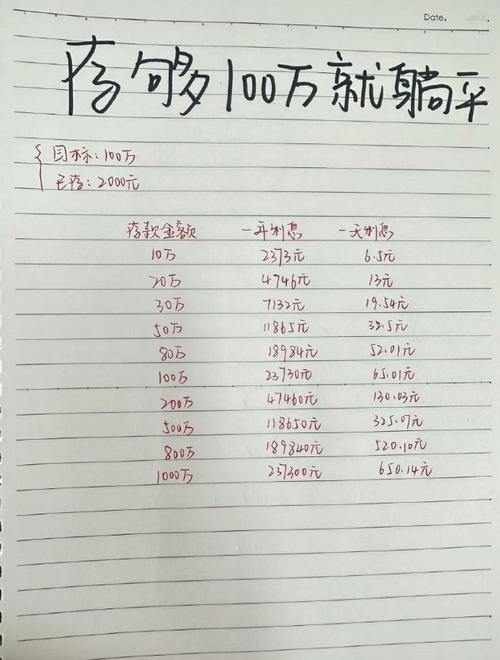 Date.
存够100万就躺平
目标:100万
已存:2000元
存款金额 一年利息 一天利息
10万 2373元 6.5元
20万 4746元 13元
30万 7132元 19.54元
50万 11865元 32.5元
80万 18984元 52.01元
100万 23730元 65.01元
200万 47460元 130.03元
500万 118650元 325.07元
800万 189840元 520.10元
1000万 237300元 650.14元